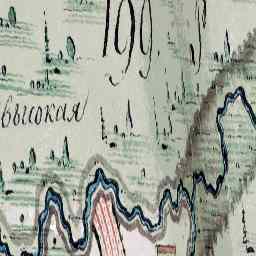 199
высокая